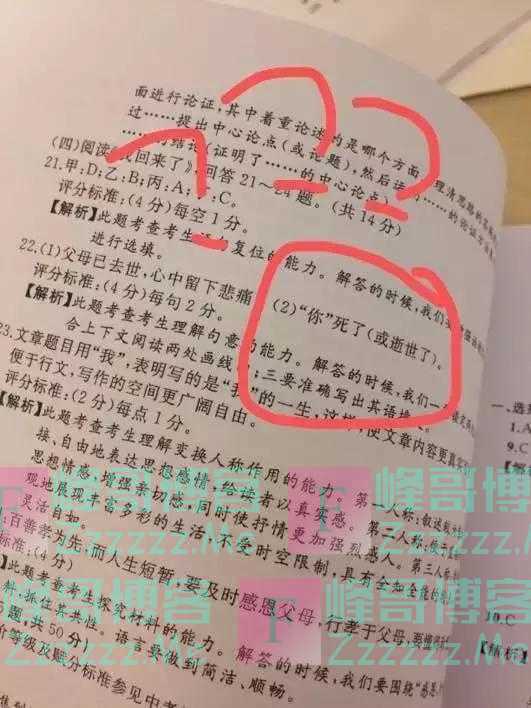 面进行论证,其中着重论述的是哪个方面
理清思路的
过……提出中心论点(或论题),然后
的结论(证明了……的中心论点)
的论证
(四)阅读《我回来了》,回答21~24题。(共14分)
21.甲:D;乙:B;丙:A;丁:C。
评分标准:(4分)每空1分。
【解析】此题考查考生 复位的能力。解答的时候,我们
进行选填。
22.(1)父母已去世,心中留下悲痛
(2)“你”死了(或逝世了)。
评分标准:(4分)每句2分。
【解析】此题考查考生理解句意的能力。解答的时候,我们一
合上下文阅读两处画线 ;三要准确写出其语
23.文章题目用“我”,表明写的是“我”的一生,这样,使文章内容更真实
便于行文,写作的空间更广阔自由。
评分标准:(2分)每点1分。
【解析】此题考查考生理解变换人称作用的能力。第一人称:叙述
接、自由地表达思想感情,给读者以真实感。第二人称:便于
思想情感,增强亲切感,同时使抒情更加强烈感人。第三人称
观地展现丰富多彩的生活,不受时空限制,具有
灵活自如。
:百善孝为先;而人生短暂,要及时感恩父母,行孝于父母,
标准:(4分)
】此题考查考生探究材料的能力。解答的时候,我们要围绕“感恩
料,抓住其共性。语言要做到简洁、顺畅。
题,共50分)
价等级及赋分标准参见中考
一、选
1.A
9.C
10.C
【解析】
峰哥博客
Zzzzzz.Me
峰哥博客
Zzzzzz.Me
峰哥博客
Zzzzzz.Me
峰哥博客
Zzzzzz.Me